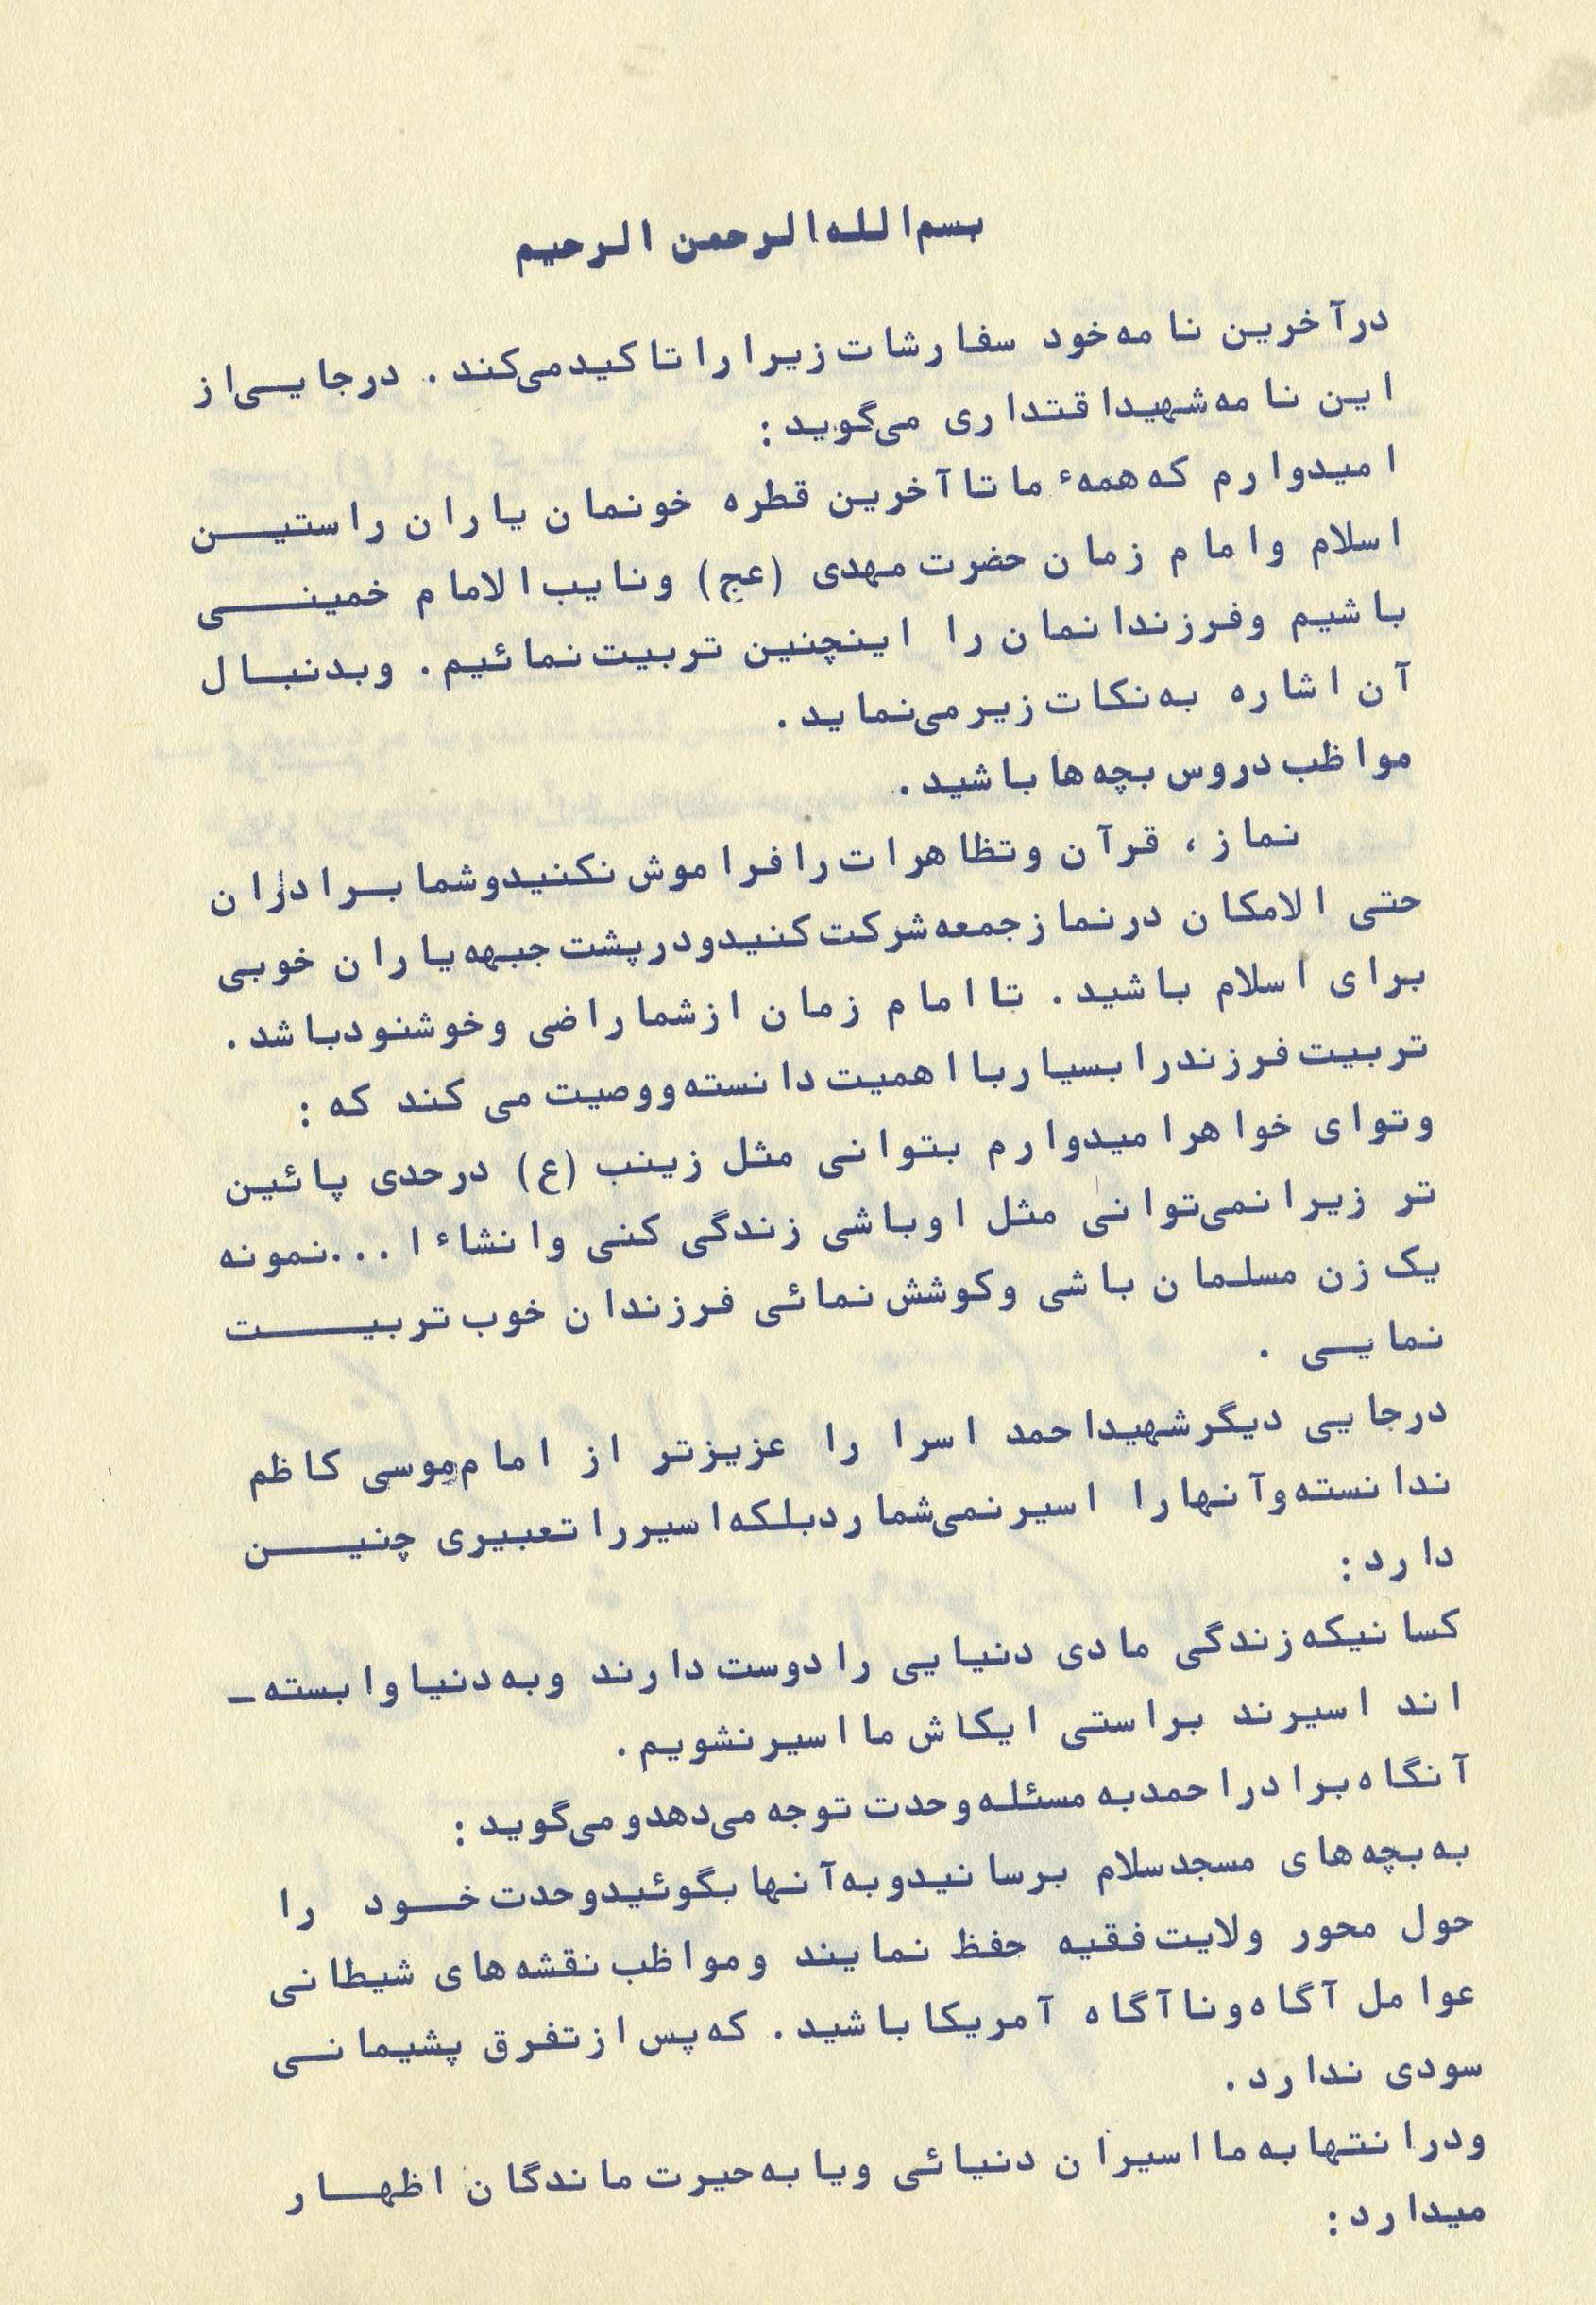 بسم الله الرحمن الرحیم
درآخرین نامه خود سفارشات زیرا را تاکید می‌کند . درجایی از
این نامه شهید اقتداری می‌گوید :
امیدوارم که همهٔ ما تا آخرین قطره خونمان یاران راستین
اسلام و امام زمان حضرت مهدی (عج) و نایب الامام خمینی
باشیم و فرزندانمان را اینچنین تربیت نمائیم . و بدنبال
آن اشاره به نکات زیر می‌نماید .
مواظب دروس بچه‌ها باشید .
نماز ، قرآن و تظاهرات را فراموش نکنید و شما برادران
حتی الامکان در نماز جمعه شرکت کنید و در پشت جبهه یاران خوبی
برای اسلام باشید . تا امام زمان از شما راضی و خوشنود باشد .
تربیت فرزند را بسیار با اهمیت دانسته و وصیت می کند که :
و تو ای خواهر امیدوارم بتوانی مثل زینب (ع) در حدی پائین
تر زیرا نمی‌توانی مثل او باشی زندگی کنی و انشاء ا ...نمونه
یک زن مسلمان باشی و کوشش نمائی فرزندان خوب تربیت
نمایی .
درجایی دیگر شهید احمد اسرا را عزیزتر از امام موسی کاظم
ندانسته و آنها را اسیر نمی‌شمارد بلکه اسیر را تعبیری چنین
دارد :
کسانیکه زندگی مادی دنیایی را دوست دارند و به دنیا وابسته ـ
اند اسیرند براستی ایکاش ما اسیر نشویم .
آنگاه برادر احمد به مسئله وحدت توجه می‌دهد و می‌گوید :
به بچه‌های مسجد سلام برسانید و به آنها بگوئید وحدت خود را
حول محور ولایت فقیه حفظ نمایند و مواظب نقشه‌های شیطانی
عوامل آگاه و ناآگاه آمریکا باشید . که پس از تفرق پشیمانی
سودی ندارد .
و در انتها به ما اسیران دنیائی و یا به حیرت ماندگان اظهار
میدارد :